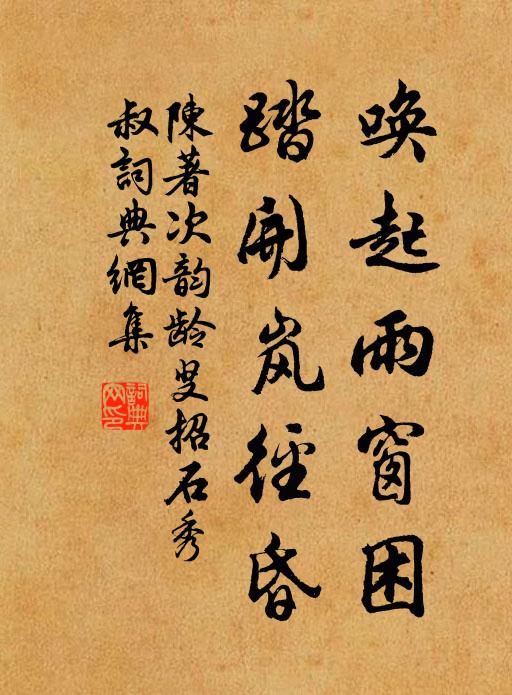 唤起雨窗困
踏開岚徑昏
陳著次韵龄叟招石秀
叔詞典網集
詞典
网印